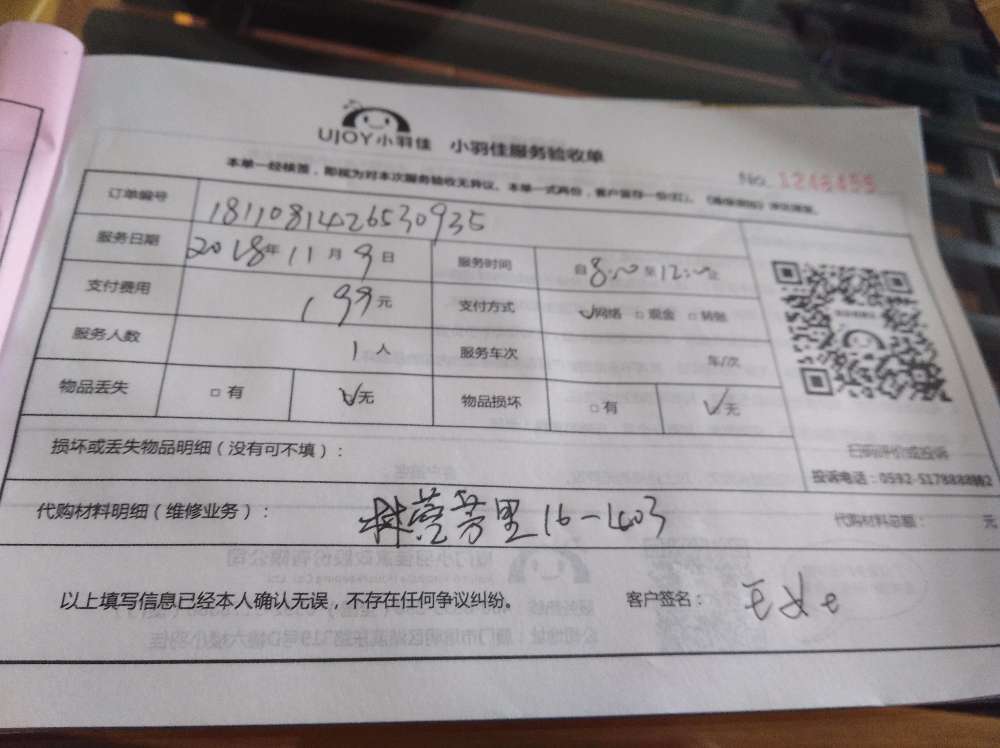 UJOY小羽佳 小羽佳服务验收单
本单一经核签，即视为对本次服务验收无异议。本单一式两份，客户留存一份(红)。
No. 1246455
订单编号 1811081426530935
服务日期 2018年11月9日 服务时间 自8:00至12:00止
支付费用 199元 支付方式 ✓网络 □现金 □转账
服务人数 1人 服务车次 车/次
物品丢失 □有 ✓无 物品损坏 □有 ✓无
扫码评价或投诉
损坏或丢失物品明细（没有可不填）：
投诉电话：0592-5178888
代购材料明细（维修业务）： 16-1403
代购材料总额： 元
以上填写信息已经本人确认无误，不存在任何争议纠纷。 客户签名：